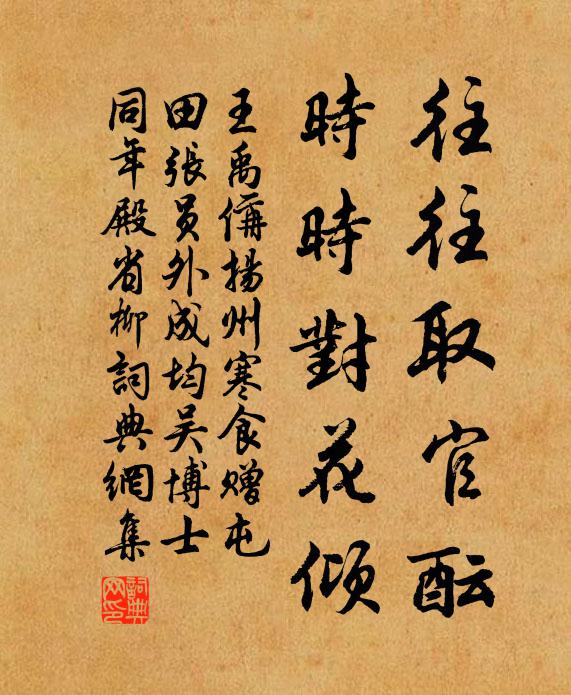 往往取官酝
時時對花傾
王禹偁揚州寒食赠屯
田張员外成均吴博士
同年殿省柳詞典網集
詞典网印